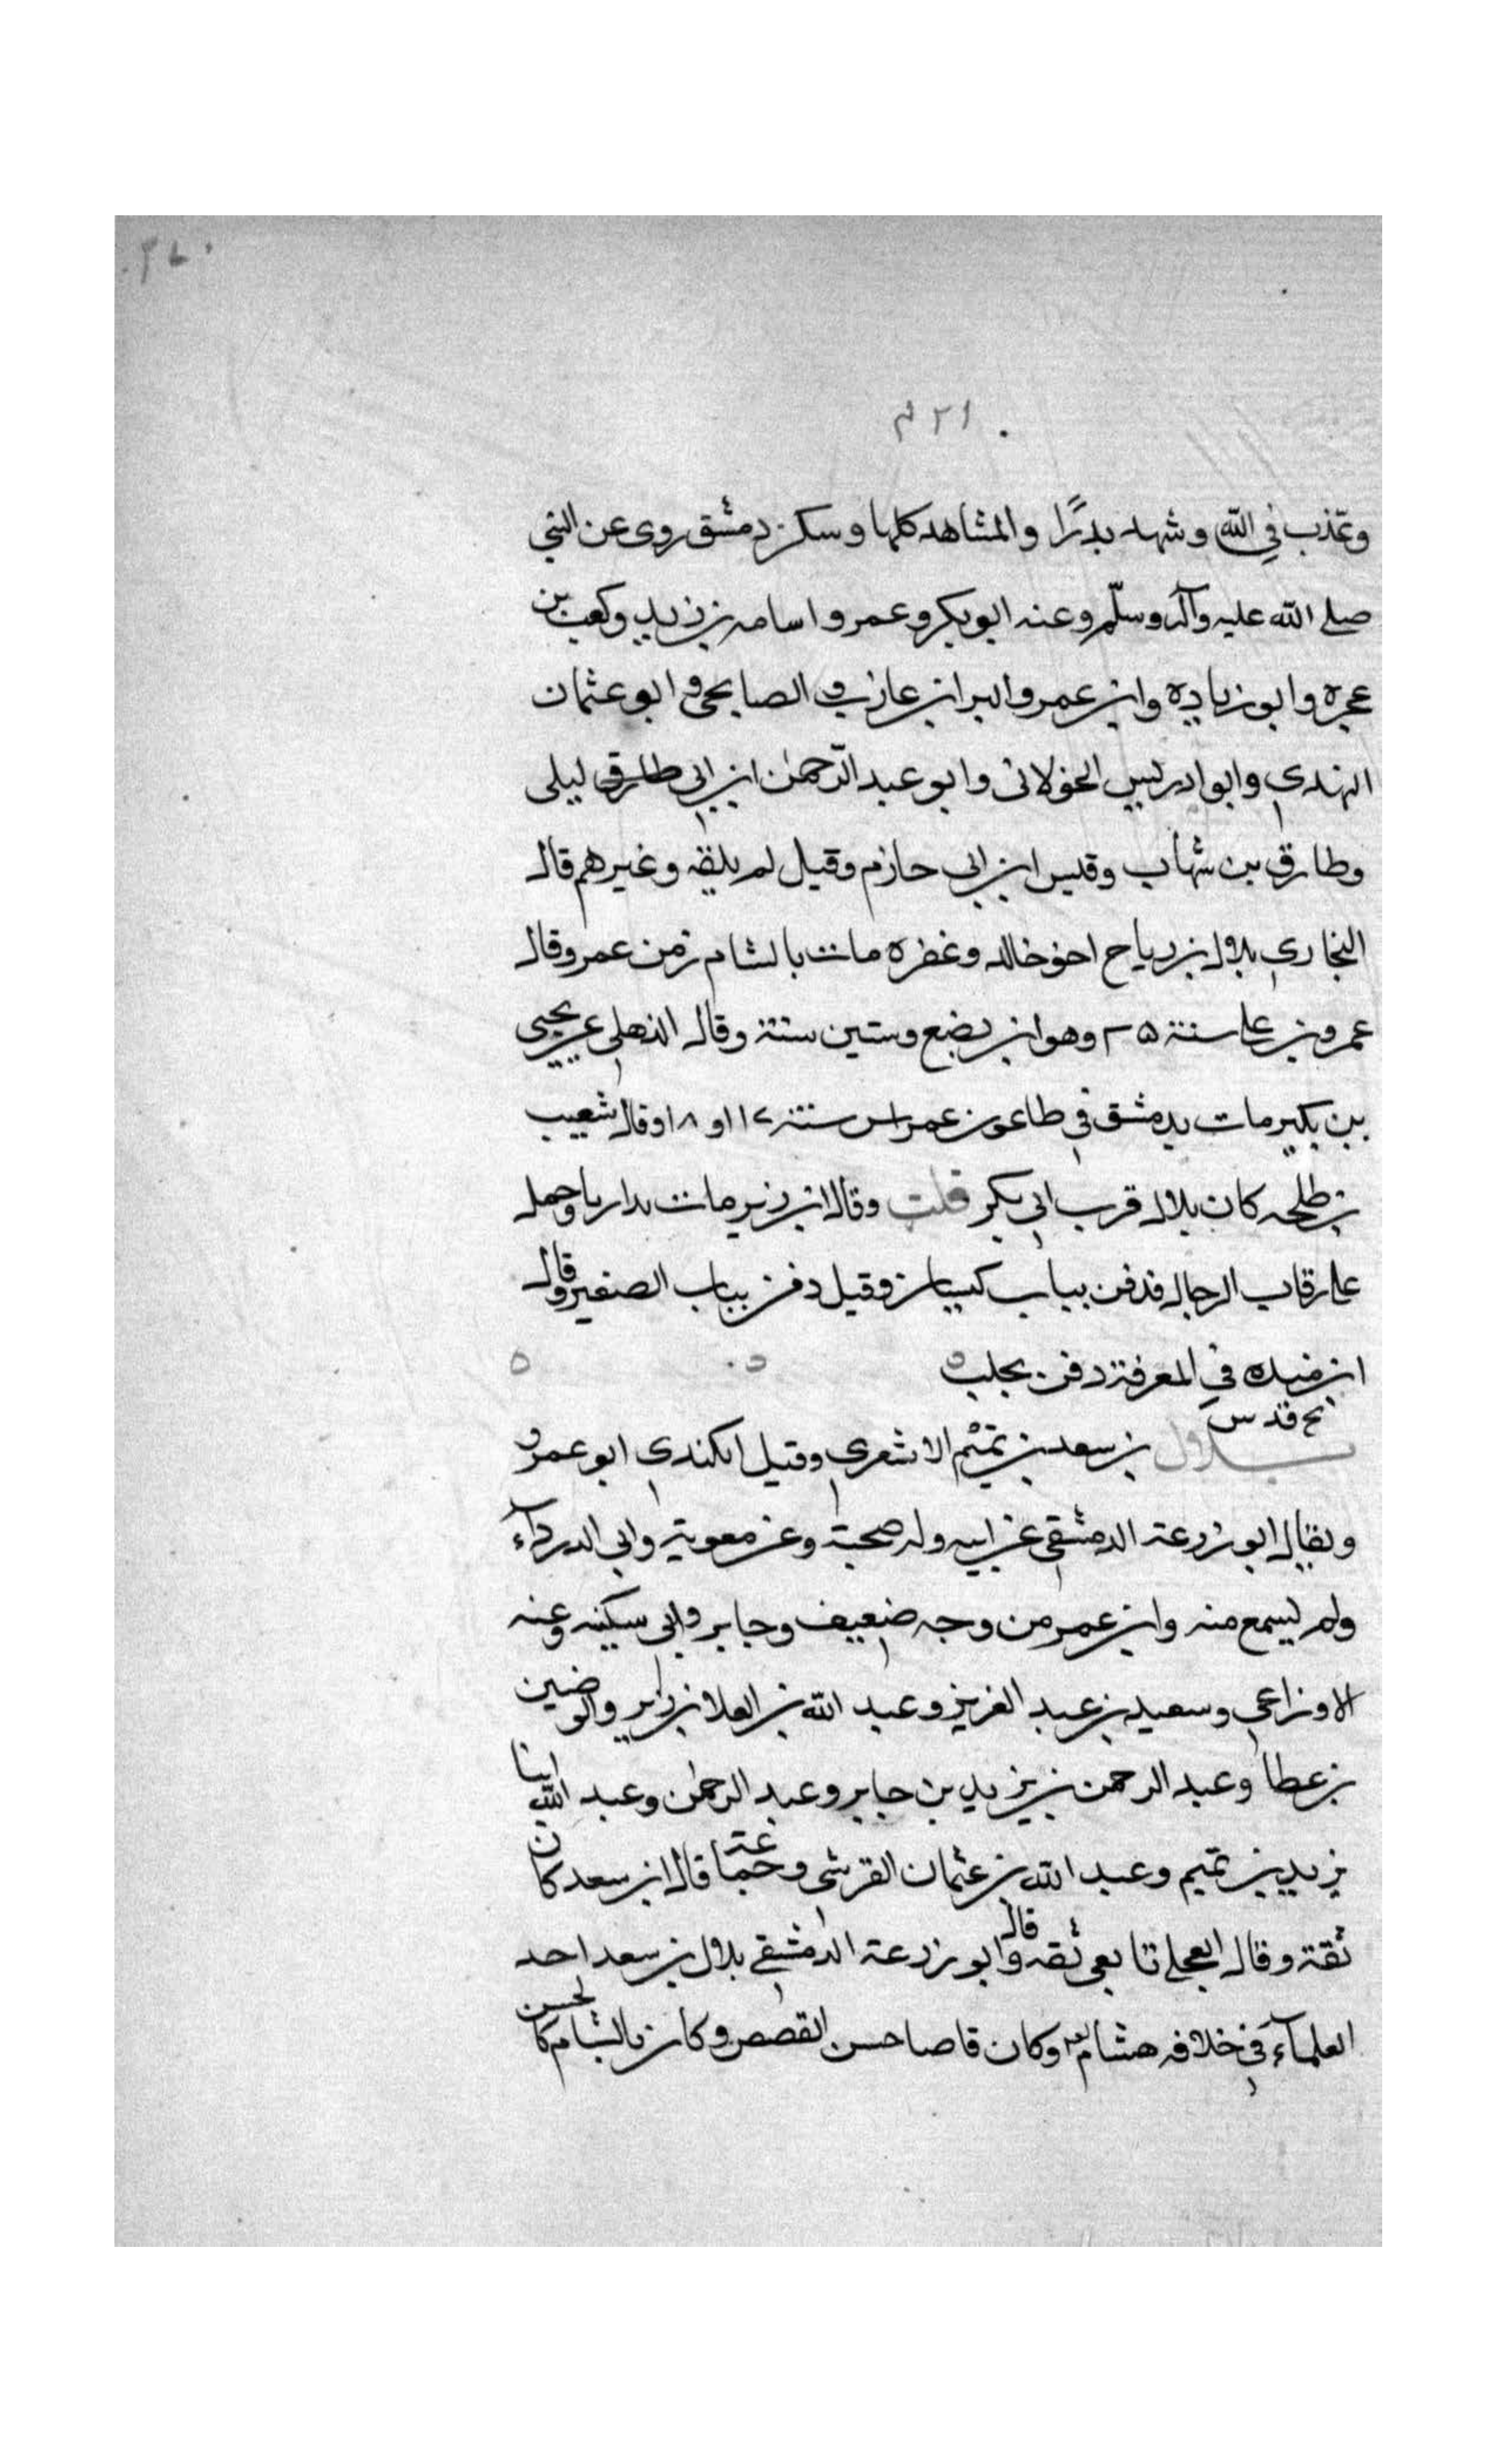 وتعذب في الله وشهد بدرًا والمشاهد كلها وسكن دمشق روى عن النبي
صلى الله عليه وآله وسلّم وعنه ابو بكر وعمر واسامه بن زيد وكعب بن
عجره وابو زياده وابن عمر والبرا بن عازب و الصنابحى و ابو عثمان
النهدي وابو ادريس الخولانى وابو عبد الرّحمٰن ابن ابي طارق ليلى
وطارق بن شهاب وقيس ابن ابي حازم وقيل لم يلقه وغيرهم قال
البخاري بلال بن رباح اخو خالد وغفره مات بالشام زمن عمر وقال
عمرو بن على سنة ٢٥ وهو ابن بضع وستين سنة وقال الذهلي عن يحيى
بن بكير مات بدمشق في طاعون عمواس سنة ١٧ او ١٨ وقال شعيب
بن طلحه كان بلال قرب ابي بكر قلت وقال ابن زبر مات بداريا وحمل
على رقاب الرجال فدفن بباب كيسان وقيل دفن بباب الصغير وقال
ابن منده في المعرفة دفن بحلب
بخ قد س
بلال بن سعد بن تميم الاشعري وقيل الكندي ابو عمرو
ويقال ابو زرعة الدمشقي عن ابيه وله صحبة وعن معوية وابي الدرداء
ولم يسمع منه وابن عمر من وجه ضعيف وجابر وابى سكينه وعنه
الاوزاعي وسعيد بن عبد العزيز وعبد الله بن العلا بن زبر والوضين
بن عطا وعبد الرحمن بن يزيد بن جابر وعبد الرحمٰن وعبد الله ابنا
يزيد بن تميم وعبد الله بن عثمان القرشى وجماعة قال ابن سعد كان
ثقة وقال العجلي تابعى ثقه وقال ابو زرعة الدمشقي بلال بن سعد احد
العلمآء في خلافه هشام وكان قاصا حسن القصص وكان بالشام كالحسن